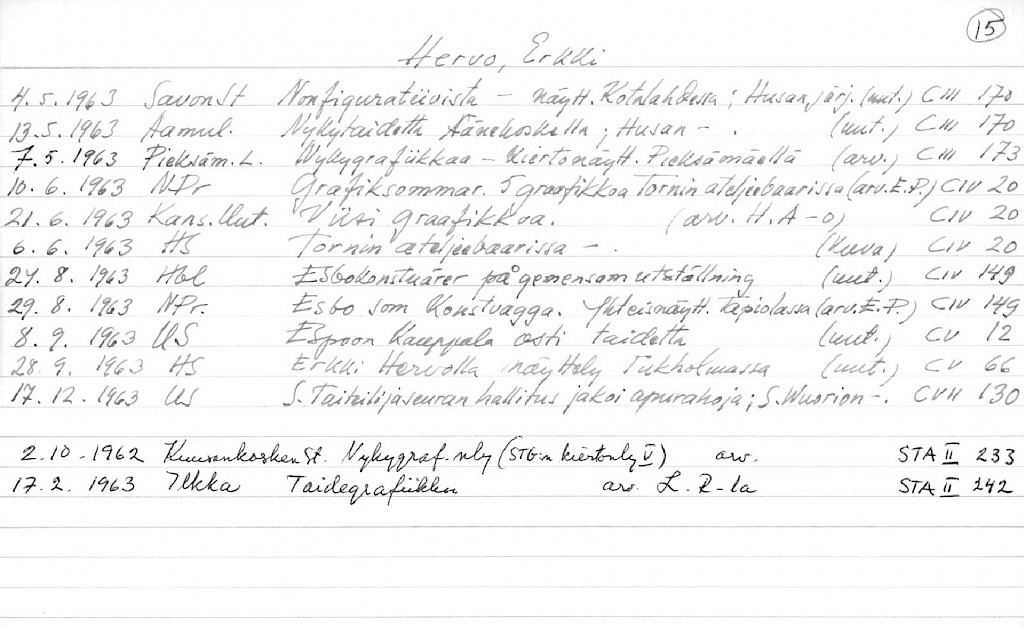 15
Hervo, Erkki
4.5.1963 SavonSt Nonfiguratiivista - näytt. Kotalahdessa; Husan järj. (uut.) CIII 170
13.5.1963 Aamul. Nykytaidetta Äänekoskella; Husan - . (uut.) CIII 170
7.5.1963 Pieksäm.L. Nykygrafiikkaa - kiertonäytt. Pieksämäellä (arv.) CIII 173
10.6.1963 NPr Grafiksommar. 5 graafikkoa Tornin ateljeebaarissa (arv. E.P.) CIV 20
21.6.1963 Kans.Uut. Viisi graafikkoa. (arv. H.A-o) CIV 20
6.6.1963 HS Tornin ateljeebaarissa - . (kuva) CIV 20
27.8.1963 Hbl Esbokonstnärer på gemensam utställning (uut.) CIV 149
29.8.1963 NPr. Esbo som konstvagga. Yhteisnäytt. Tapiolassa (arv. E.P.) CIV 149
8.9.1963 US Espoon Kauppala osti taidetta (uut.) CV 12
28.9.1963 HS Erkki Hervolla näyttely Tukholmassa (uut.) CV 66
17.12.1963 US S.Taiteilijaseuran hallitus jakoi apurahoja; S.Wuorion -. CVII 130
2.10-1962 KuusankoskenSt. Nykygraf.nly (STG:n kiertonly V) arv. STA II 233
17.2.1963 Ilkka Taidegrafiikka arv. L.R-la STA II 242